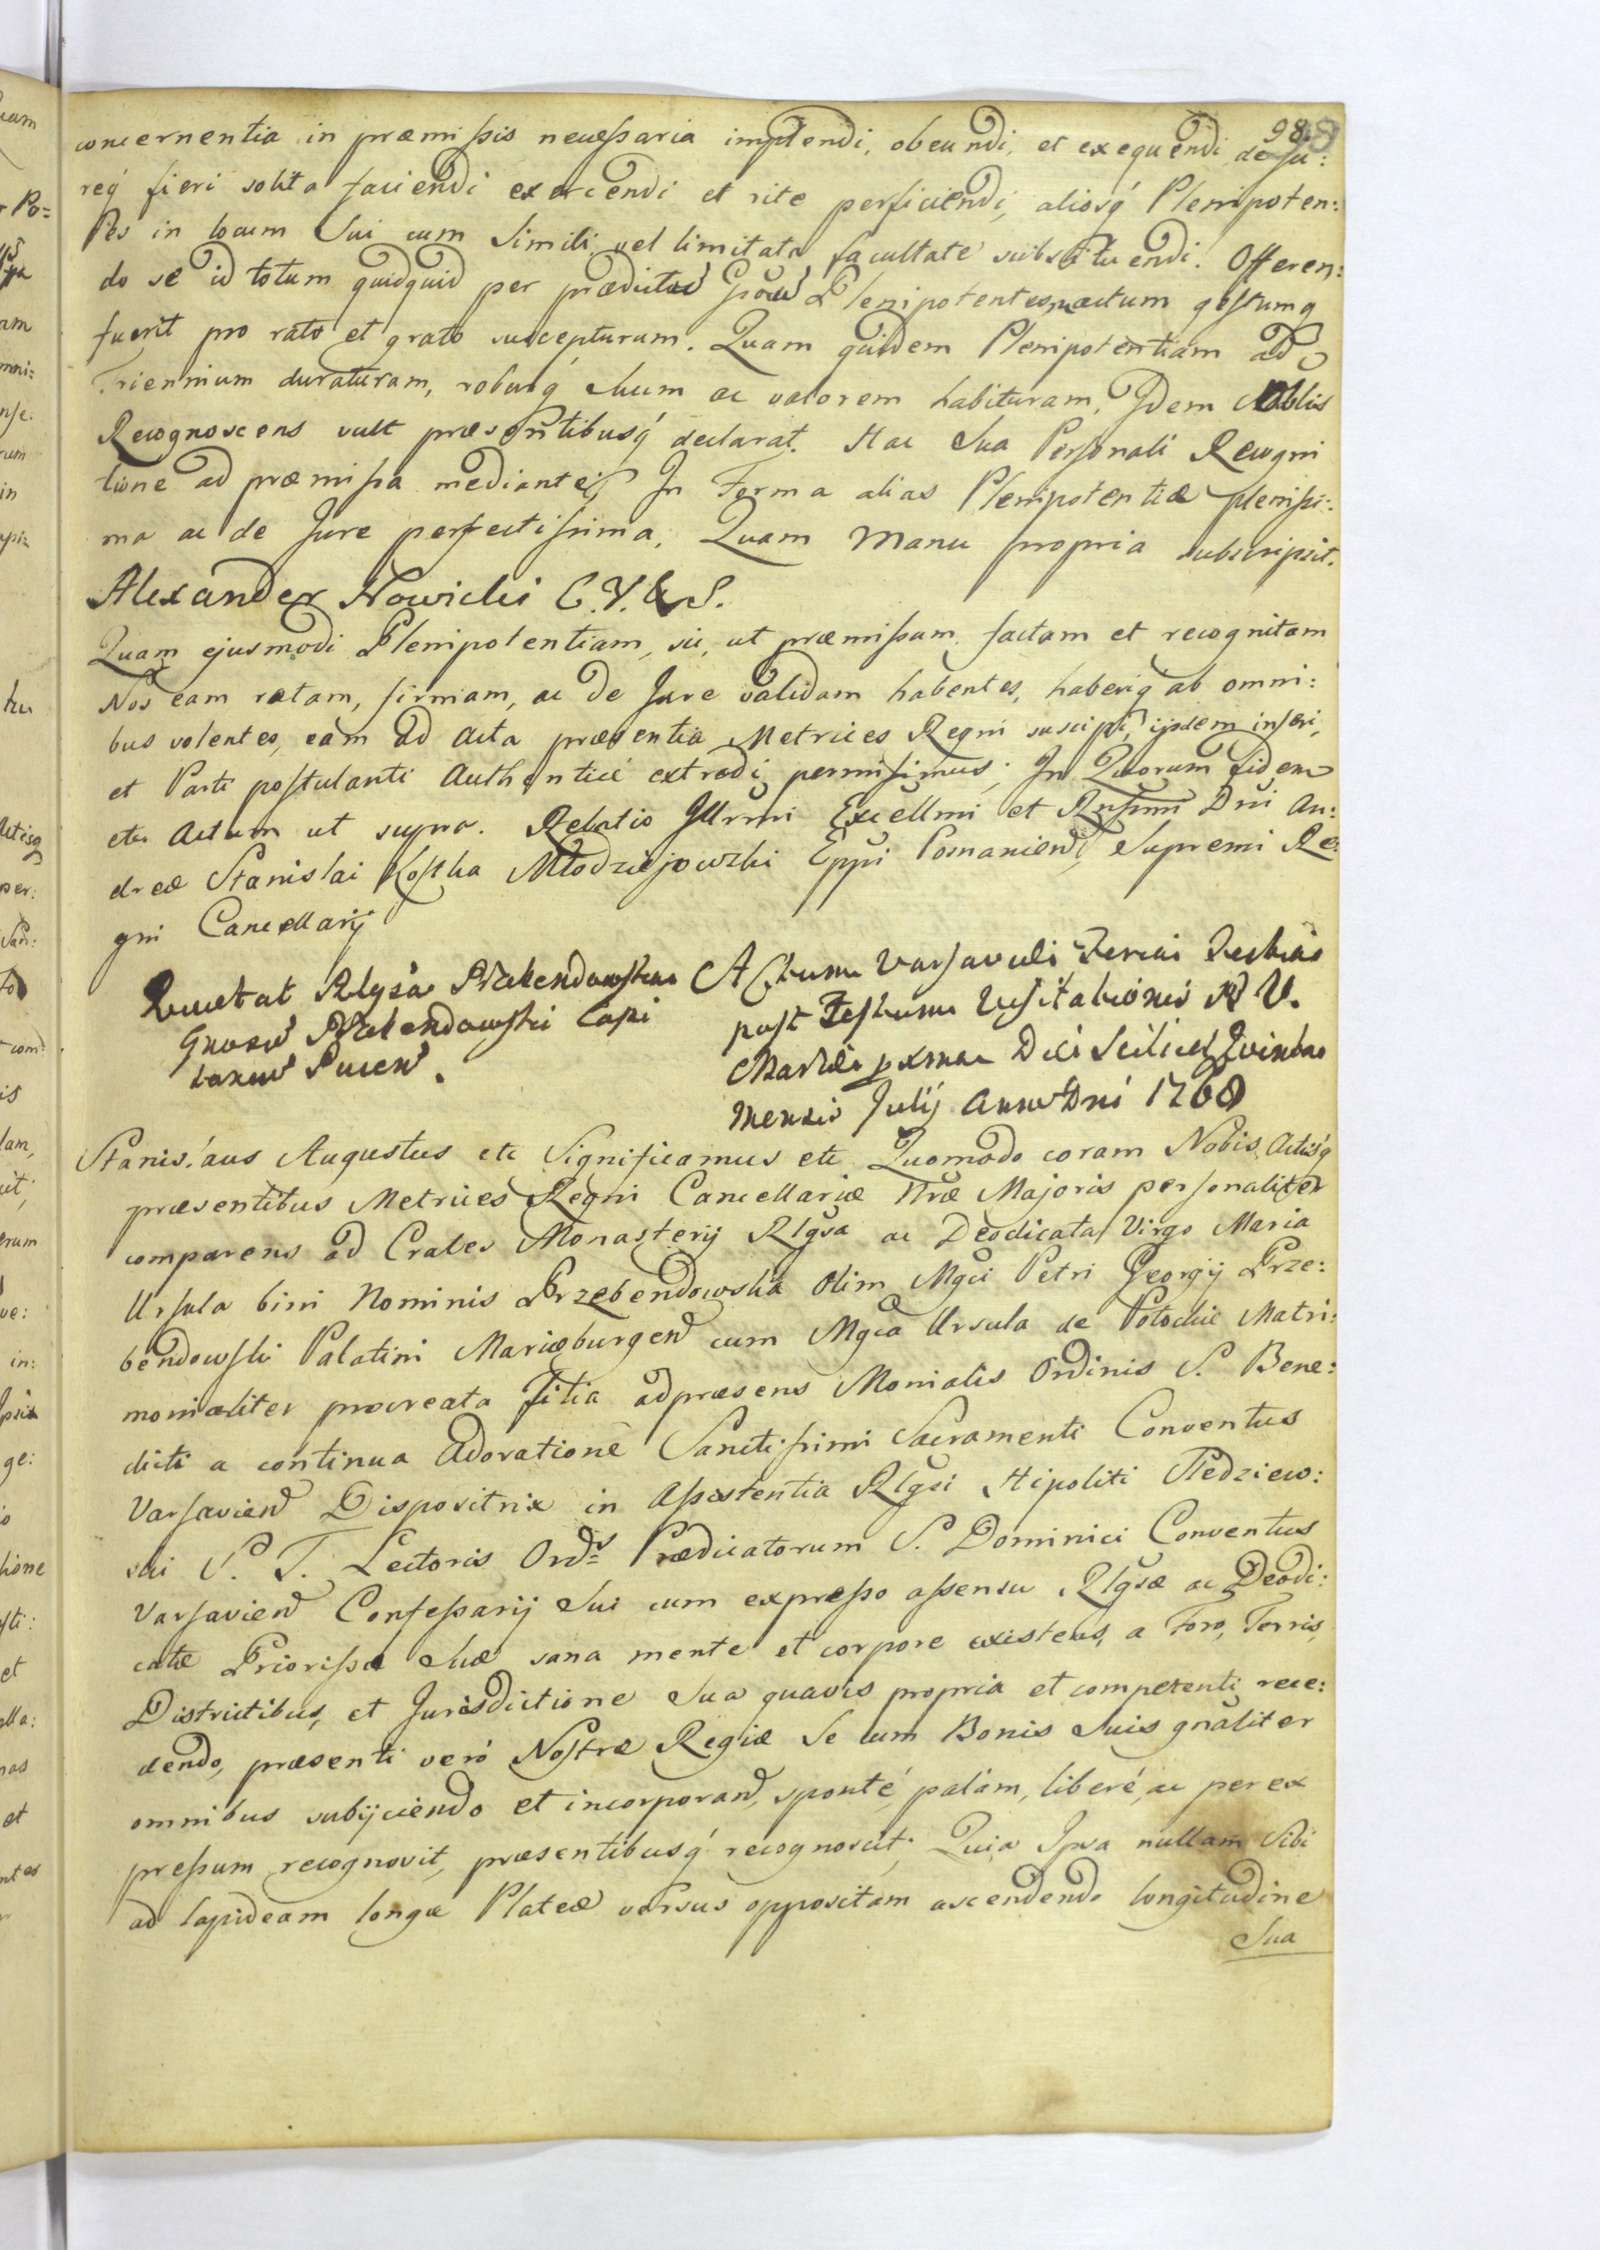 98.
concernentia in præmissis necessaria implendi, obeundi, et exequendi de Ju:
req́ fieri solita faciendi exercendi et rite perficiendi, aliosq́ Plenipoten:
tes in locum Sui cum Simili vel limitata facultate substituendi. Offeren:
do se id totum quidquid per prædictos Plenipotentes actum gestumq
fuerit pro rato et grato suscepturum. Quam quidem Plenipotentiam ad
Triennium duraturam, roburq́ Suum ac valorem habituram, Idem Nobilis
Recognoscens vult præsentibusq́ declarat. Hac Sua Personali Recogni
tione ad præmissa mediante In Forma alias Plenipotentiæ plenissi:
ma ac de Jure perfectissima, Quam Manu propria subscripsit.
Alexander Nowicki
Quam ejusmodi Plenipotentiam, sic, ut præmissum, factam et recognitam
Nos eam ratam, firmam, ac de Jure validam habentes, haberiq ab omni:
bus volentes, eam ad Acta præsentia Metrices Regni suscipi, ijsdem inseri,
et Parti postulanti Authenticè extradi permisimus; In Quorum fidem
etc Actum ut supra. Relatio Illrmi Excellmi et Rnssmi Dni An:
dreæ Stanislai Kostka Młodziejowski Eppi Posnanien, Supremi Re:
gni Cancellarij
Quietat Rlgsa Przebendowska
Gnosum Przebendowski Capi
taneum Pucen.
Actum Varsaviæ Feria Tertia
post Festum Visitationis B V.
Mariæ pxma Die Scilicet Quinta
Mensis Julij Anno Dni 1768
Stanislaus Augustus etc Significamus etc Quomodo coram Nobis Actisq́
præsentibus Metrices Regni Cancellariæ Nræ Majoris personaliter
comparens ad Crates Monasterij Rlgsa ac Deodicata Virgo Maria
Ursula bini Nominis Przebendowska Olim Mgci Petri Georgij Prze:
bendowski Palatini Mariæburgen cum Mgca Ursula de Potockie Matri:
monialiter procreata Filia adpræsens Monialis Ordinis S. Bene:
dicti a continua Adoratione Sanctissimi Sacramenti Conventus
Varsavien Dispositrix in Assistentia Rlgsi Hipoliti
S. T. Lectoris Ords Prædicatorum S. Dominici Conventus
Varsavien Confessarij Sui cum expresso assensu Rlgsæ ac Deodi:
catæ Priorissæ Suæ sana mente et corpore existens, a Foro, Terris,
Districtibus, et Jurisdictione Sua quavis propria et competenti rece:
dendo, præsenti verò Nostræ Regiæ Se cum Bonis Suis gnaliter
omnibus subijciendo et incorporand, spontè, palàm, liberè, ac per ex
pressum recognovit, præsentibusq́ recognoscit; Quia Ipsa nullam Sibi
ad lapideam longæ Plateæ versus oppositam ascendendo longitudine
Sua